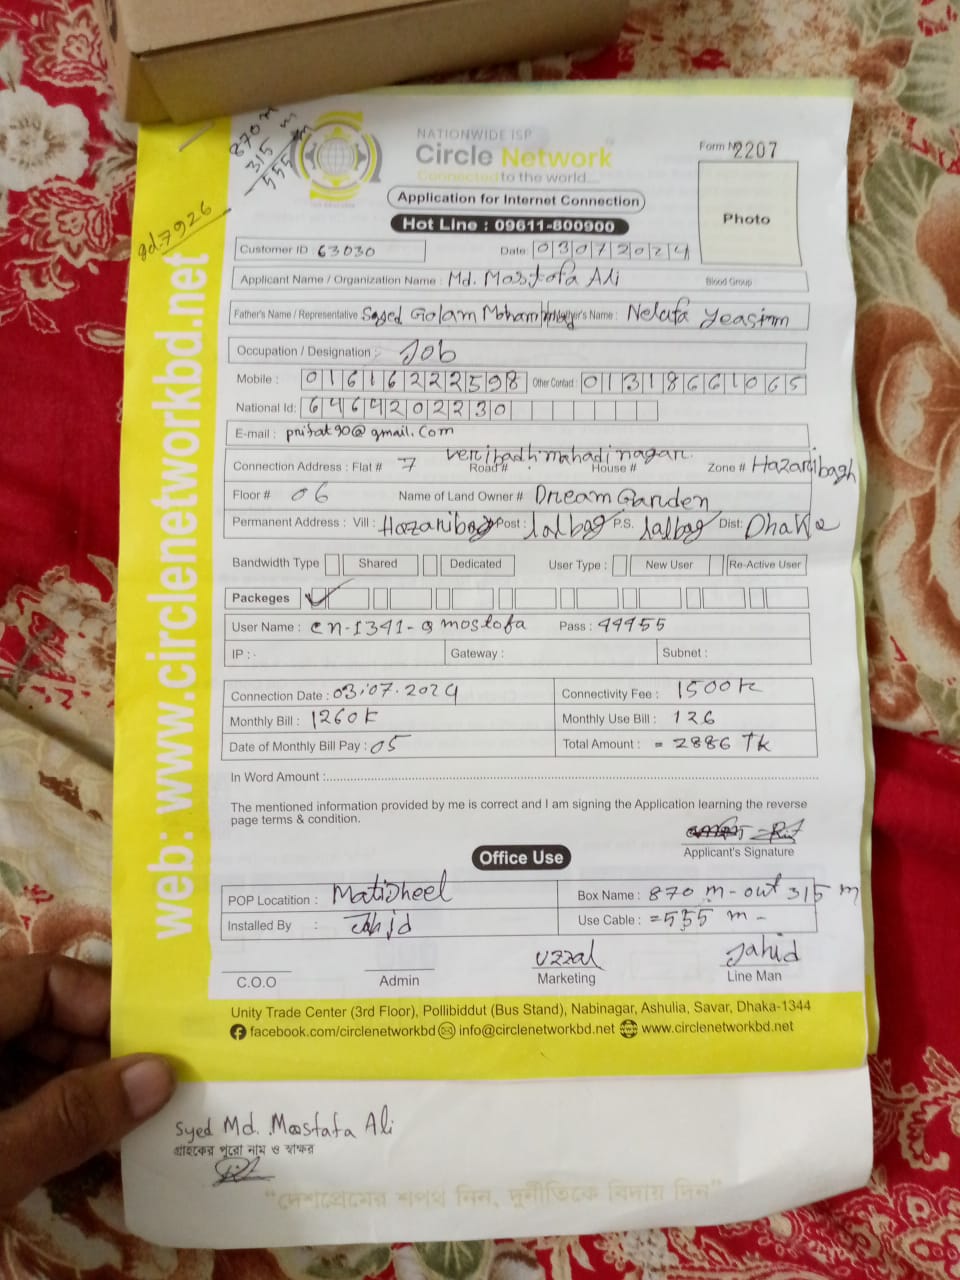 870 m
315 m
555 m
gd.7926
NATIONWIDE ISP
Circle Network
Connected to the world...
Application for Internet Connection
Hot Line : 09611-800900
Form No 2207
Photo
Customer ID 63030 Date: 03072024
Applicant Name / Organization Name : Md. Mostofa Ali Blood Group
Father's Name / Representative Sayed Golam Mother's Name :
Occupation / Designation : Job
Mobile : 01616222598 Other Contact : 01318661065
National Id: 6464202230
E-mail : prifat90@gmail.com
Connection Address : Flat # 7 Road # House # Zone # Hazaribagh
Floor # 06 Name of Land Owner # Dream Garden
Permanent Address : Vill : Hazaribag Post : lalbag P.S. lalbag Dist: Dhaka
Bandwidth Type Shared Dedicated User Type : New User Re-Active User
Packeges ✓
User Name : cn-1341-@mostofa Pass : 44455
IP : Gateway : Subnet :
Connection Date : 03.07.2024 Connectivity Fee : 1500tk
Monthly Bill : 1260tk Monthly Use Bill : 126
Date of Monthly Bill Pay : 05 Total Amount : = 2886 Tk
In Word Amount :
The mentioned information provided by me is correct and I am signing the Application learning the reverse
page terms & condition.
Applicant's Signature
Office Use
POP Locatition : Matijheel Box Name : 870 m - out 315 m
Installed By : Jahid Use Cable : =555 m -
Uzzal Jahid
C.O.O Admin Marketing Line Man
Unity Trade Center (3rd Floor), Pollibiddut (Bus Stand), Nabinagar, Ashulia, Savar, Dhaka-1344
facebook.com/circlenetworkbd info@circlenetworkbd.net www.circlenetworkbd.net
web: www.circlenetworkbd.net
Syed Md. Mostafa Ali
গ্রাহকের পুরো নাম ও স্বাক্ষর
“দেশপ্রেমের শপথ নিন, দুর্নীতিকে বিদায় দিন”